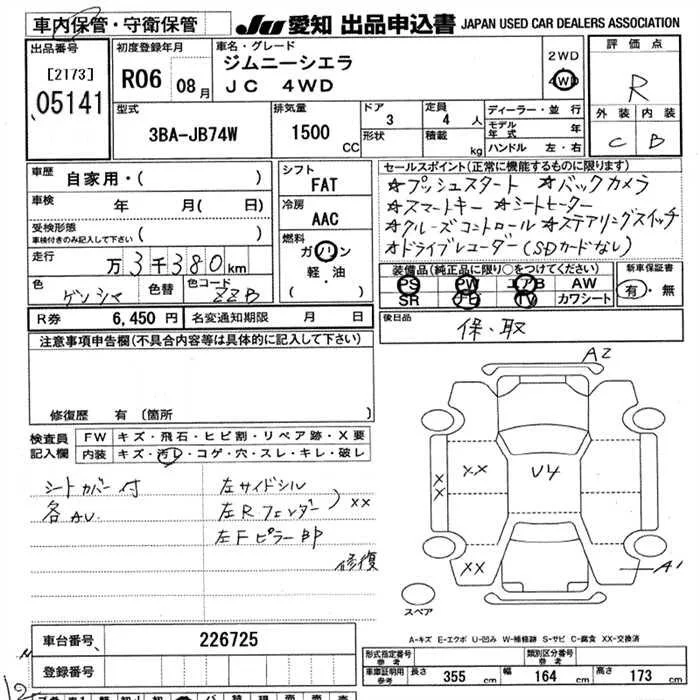 車内保管・守衛保管
JU 愛知 出品申込書 JAPAN USED CAR DEALERS ASSOCIATION
出品番号
[2173]
05141
初度登録年月
R06 08月
車名・グレード
ジムニーシエラ
JC 4WD
2WD
4WD
評価点
R
外装 内装
C B
型式
3BA-JB74W
排気量
1500 CC
ドア
3
形状
定員
4 人
積載 kg
ディーラー・並行
モデル年式 年
ハンドル 左・右
車歴
自家用・( )
車検 年 月( 日)
受検形態
車検付きのみ記入して下さい ( )
走行
万 3千380km
色
ゲンシマ
色替
色コード
ZZB
シフト
FAT
冷房
AAC
燃料
ガソリン
軽・油
( )
セールスポイント(正常に機能するものに限ります)
☆プッシュスタート ☆バックカメラ
☆スマートキー ☆シートヒーター
☆クルーズコントロール ☆ステアリングスイッチ
☆ドライブレコーダー(SDカードなし)
装備品(純正品に限り○をつけてください)
PS PW エアB AW
SR ナビ TV カワシート
新車保証書
有・無
R券 6,450円 名変通知期限 月 日
後日品
保、取
注意事項申告欄(不具合内容等は具体的に記入して下さい)
修復歴 有 (箇所 )
検査員記入欄
FW キズ・飛石・ヒビ割・リペア跡・X要
内装 キズ・汚レ・コゲ・穴・スレ・キレ・破レ
シートカバー付
各AU
左サイドシル
左Rフェンダー) XX
左Fピラー部
修復
A2
XX
XX
U4
XX
A1
スペア
A-キズ E-エクボ U-凹み W-補修跡 S-サビ C-腐食 XX-交換済
車台番号 226725
登録番号
形式指定番号 参考
類別区分番号 参考
車庫証明用 参考 長さ 355 cm 幅 164 cm 高さ 173 cm